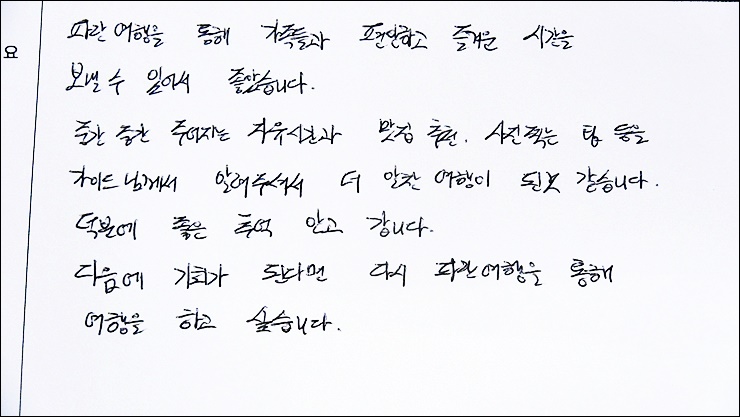 요
파란여행을 통해 가족들과 편안하고 즐거운 시간을
보낼 수 있어서 좋았습니다.
중간 중간 주어지는 자유시간과 맛집 추천, 사진찍는 팁 등을
가이드님께서 알려주셔서 더 알찬 여행이 된것 같습니다.
덕분에 좋은 추억 안고 갑니다.
다음에 기회가 된다면 다시 파란여행을 통해
여행을 하고 싶습니다.